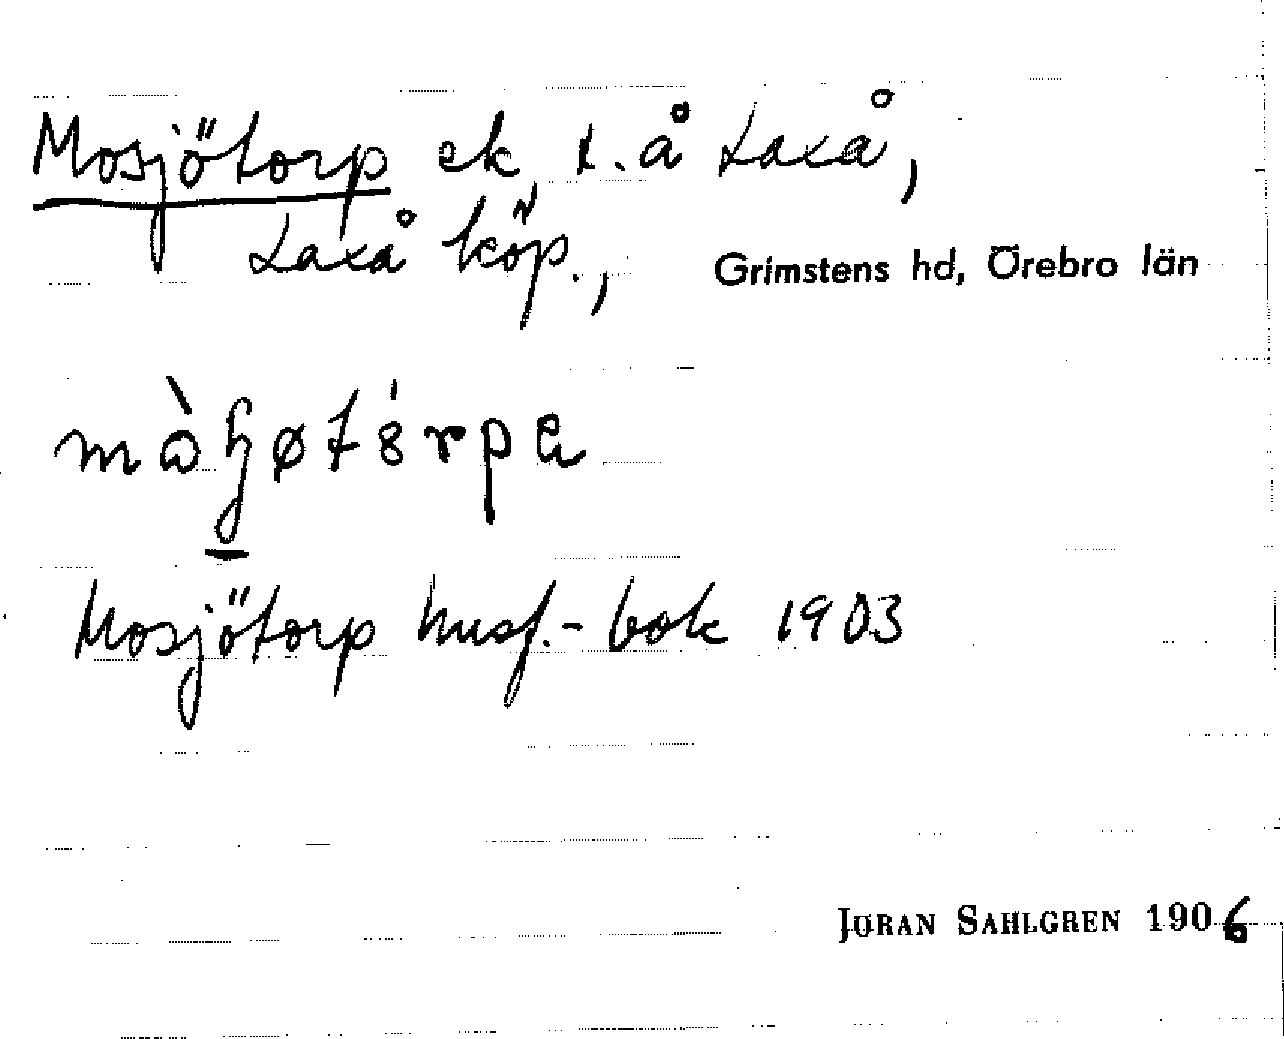 Mosjötorp ek. t. å Laxå,
Laxå köp., Grimstens hd, Örebro län
Mosjötorp husf.-bok 1903
JÖRAN SAHLGREN 1906